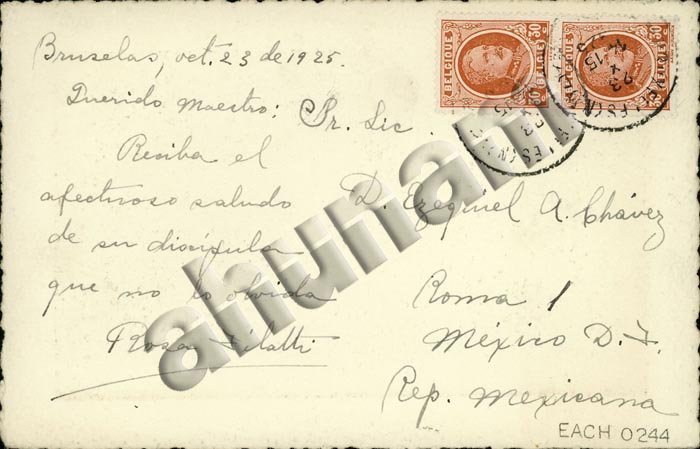 Bruselas, oct. 23 de 1925.
Querido Maestro:
Reciba el
afectuoso saludo
de su discípula
que no lo olvida
Rosa Filatti
Sr. Lic.
D. Ezequiel A. Chávez
Roma 1
México D. F.
Rep. Mexicana
EACH 0244
BELGIQUE
30
30
ahunam